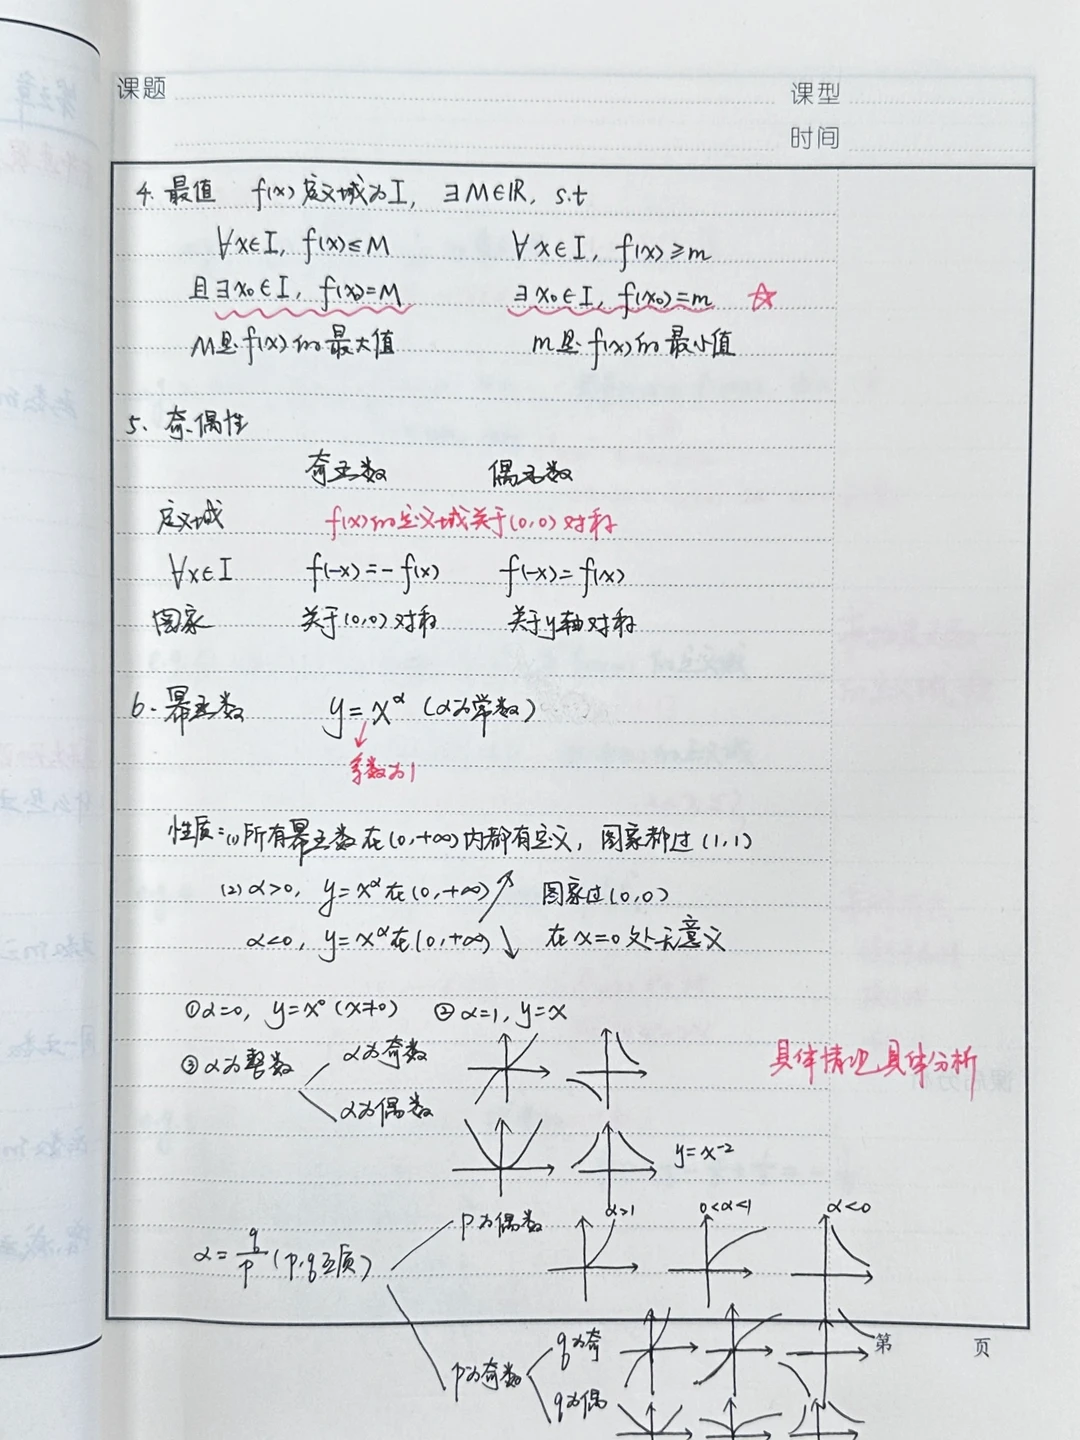 课题
课型
时间
4. 最值 f(x)定义域为I, ∃M∈R, s.t
∀x∈I, f(x)≤M ∀x∈I, f(x)≥m
且∃x₀∈I, f(x₀)=M ∃x₀∈I, f(x₀)=m ☆
M是f(x)的最大值 m是f(x)的最小值
5. 奇偶性
奇函数 偶函数
定义域 f(x)的定义域关于(0,0)对称
∀x∈I f(-x)=-f(x) f(-x)=f(x)
图象 关于(0,0)对称 关于y轴对称
6. 幂函数 y=x^α (α为常数)
系数为1
性质:(1)所有幂函数在(0,+∞)内都有定义, 图象都过(1,1)
(2)α>0, y=x^α在(0,+∞)↗ 图象过(0,0)
α<0, y=x^α在(0,+∞)↘ 在x=0处无意义
①α=0, y=x⁰(x≠0) ②α=1, y=x
③α为整数 α为奇数
α为偶数
具体情况,具体分析
y=x⁻²
α=q/p (p,q互质) p为偶数 α>1 0<α<1 α<0
p为奇数 q为奇
q为偶
第 页